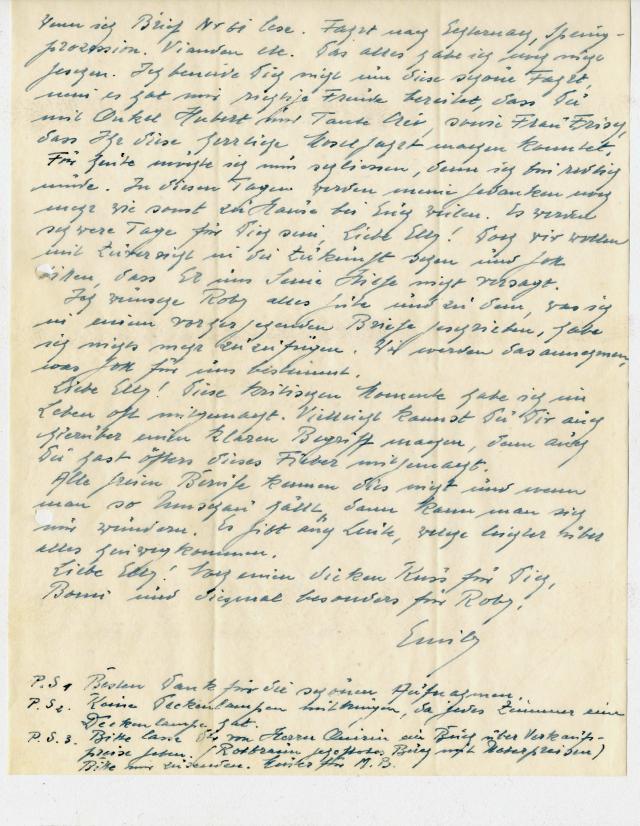 Wenn ich Brief Nr 61 lese. Fahrt nach Echternach, Spring-
prozession. Vianden etc. Das alles habe ich noch nicht
gesehen. Ich beneide Dich nicht um diese schöne Fahrt,
nein es hat mir richtige Freude bereitet, dass Du
mit Onkel Hubert und Tante Cléo, sowie Frau Frisch,
dass Ihr diese herrliche Moselfahrt machen konntet.
Für heute möchte ich nun schliessen, denn ich bin redlich
müde. In diesen Tagen werden meine Gedanken noch
mehr wie sonst zu Hause bei Euch weilen. Es werden
schwere Tage für Dich sein Liebe Elly! Doch wir wollen
mit Zuversicht in die Zukunft sehen und Gott
bitten, dass Er uns Seine Hilfe nicht versagt.
Ich wünsche Roby alles Gute und zu dem, was ich
in einem vorhergehenden Briefe geschrieben, habe
ich nichts mehr zuzufügen. Wir werden das annehmen,
was Gott für uns bestimmt.
Liebe Elly! Diese kritischen Momente habe ich im
Leben oft mitgemacht. Vielleicht kannst Du Dir auch
hierüber einen klaren Begriff machen, denn auch
Du hast öfters dieses Fieber mitgemacht.
Alle freien Berufe kennen dies nicht und wenn
man so Umschau hält, dann kann man sich
nur wundern. Es gibt auch Leute, welche leichter über
alles hinwegkommen.
Liebe Elly! Noch einen dicken Kuss für Dich,
Bomi und diesmal besonders für Roby.
Emily
P.S1 Besten Dank für die schönen Aufnahmen.
P.S2. Keine Deckenlampen mitbringen, da jedes Zimmer eine
Deckenlampe hat.
P.S.3. Bitte lasse Dir von Herrn ein Buch über Verkaufs-
preise geben. (Buch mit Meterpreisen)
Bitte mir zusenden. für M.B.